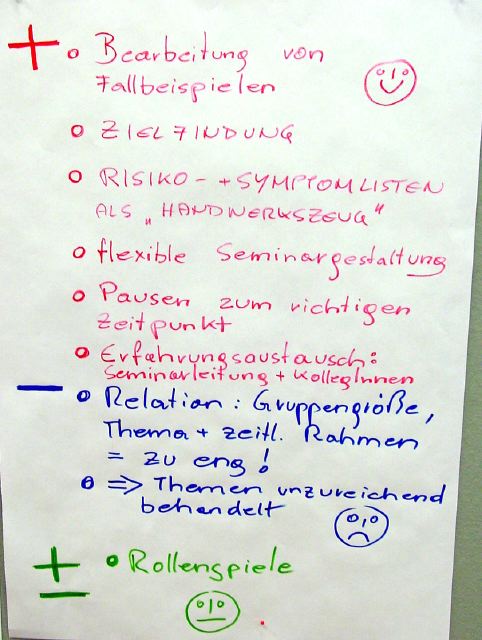 + o Bearbeitung von
Fallbeispielen
o ZIELFINDUNG
o RISIKO- + SYMPTOMLISTEN
ALS „HANDWERKSZEUG"
o flexible Seminargestaltung
o Pausen zum richtigen
Zeitpunkt
o Erfahrungsaustausch:
Seminarleitung + KollegInnen
— o Relation: Gruppengröße,
Thema + zeitl. Rahmen
= zu eng!
o ⇒ Themen unzureichend
behandelt
± o Rollenspiele